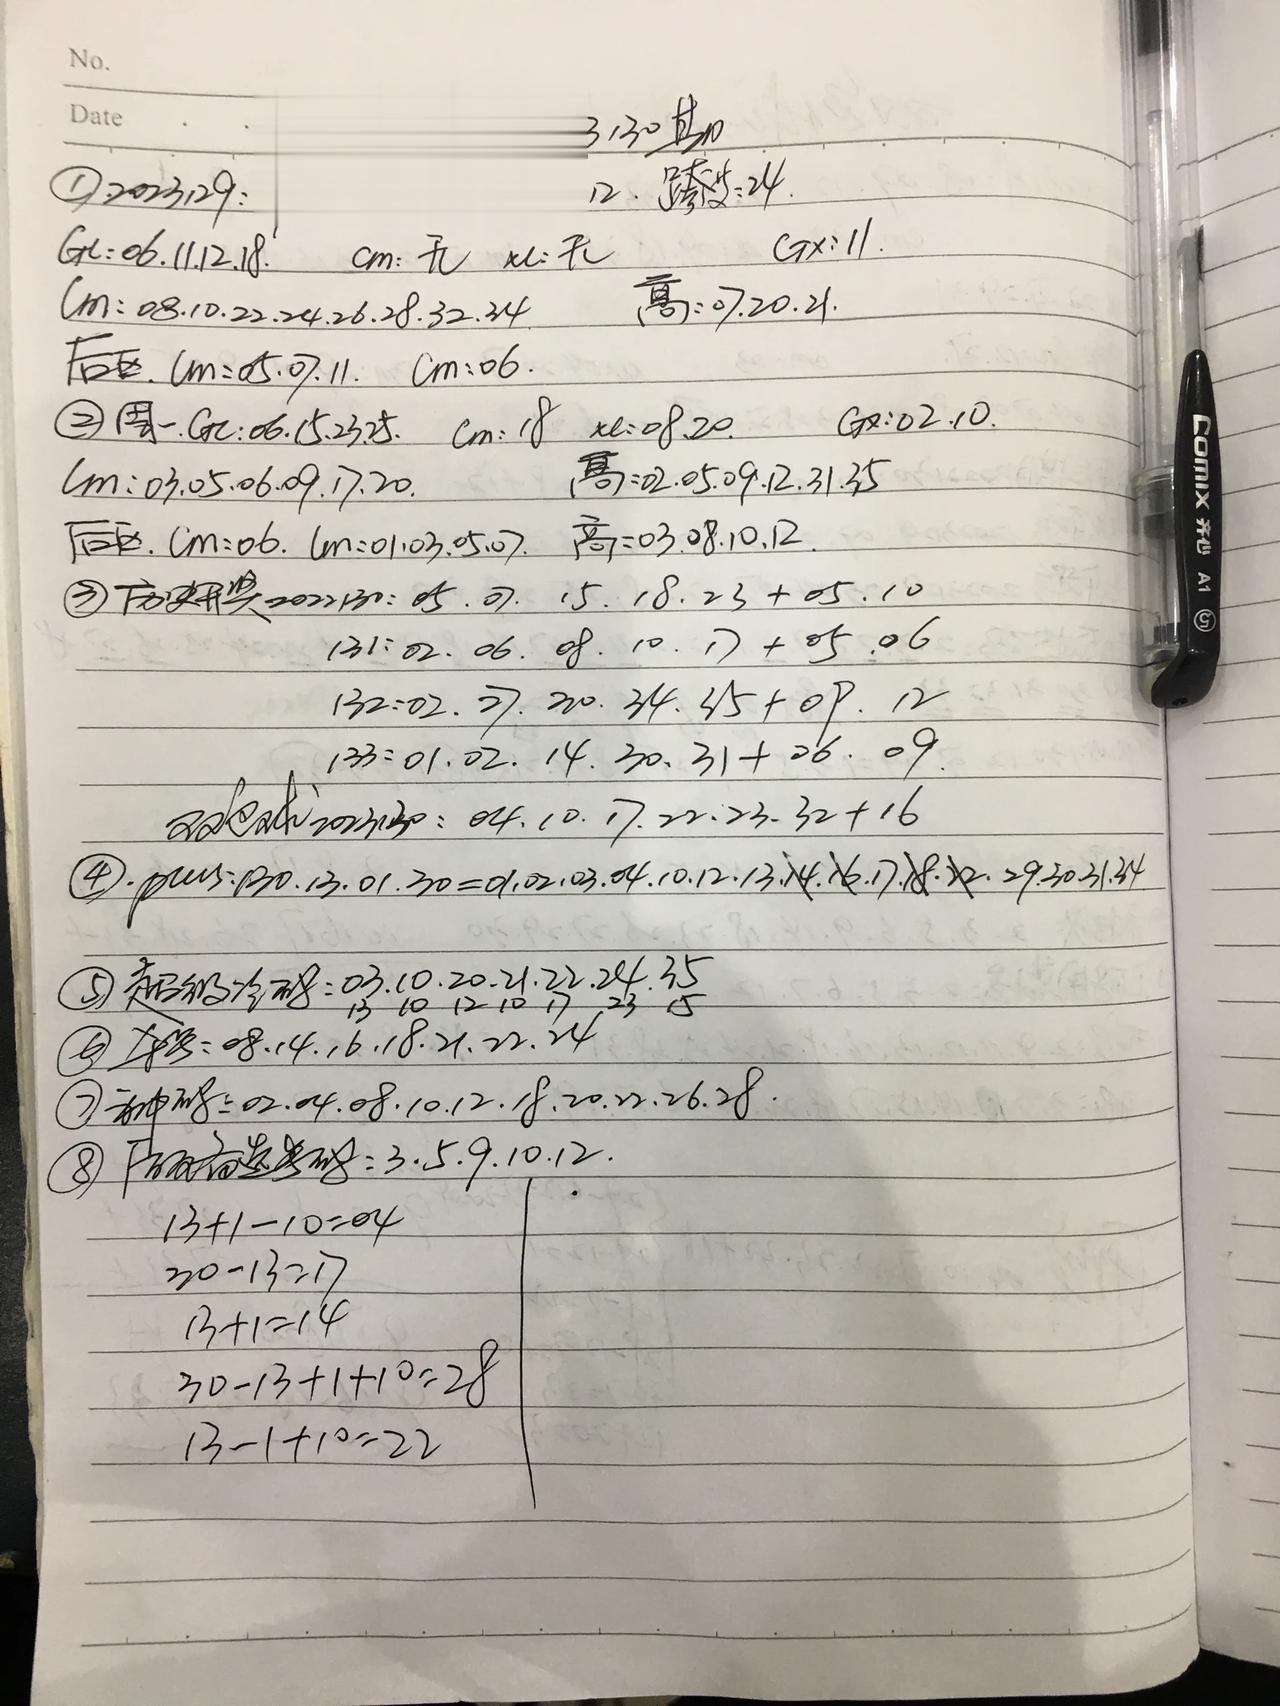 No.
Date
3130期
①2023129:
12. 跨度:24.
GL:06.11.12.18. Cm:无 XL:无 GX:11.
Lm:08.10.22.24.26.28.32.34 高:07.20.21.
后区. Lm:05.07.11. Cm:06.
②周一.GL:06.15.23.25. Cm:18 XL:08.20. GX:02.10.
Lm:03.05.06.09.17.20. 高:02.05.09.12.31.35
后区. Cm:06. Lm:01.03.05.07. 高:03.08.10.12.
③历史开奖2022130: 05.07.15.18.23+05.10
131:02.06.08.10.17+05.06
132:02.27.30.34.35+09.12
133:01.02.14.30.31+06.09.
双色球2023130: 04.10.17.22.23.32+16
④.plus:130.13.01.30=01.02.03.04.10.12.13.14.16.17.18.22.29.30.31.34
⑤超级冷码:03.10.20.21.22.24.35
13 10 12 10 17 23 15
⑥:08.14.16.18.21.22.24
⑦神码:02.04.08.10.12.18.20.22.26.28.
⑧后区:3.5.9.10.12.
13+1-10=04
30-13=17
13+1=14
30-13+1+10=28
13-1+10=22
COMIX 齐心 A1 ⑤